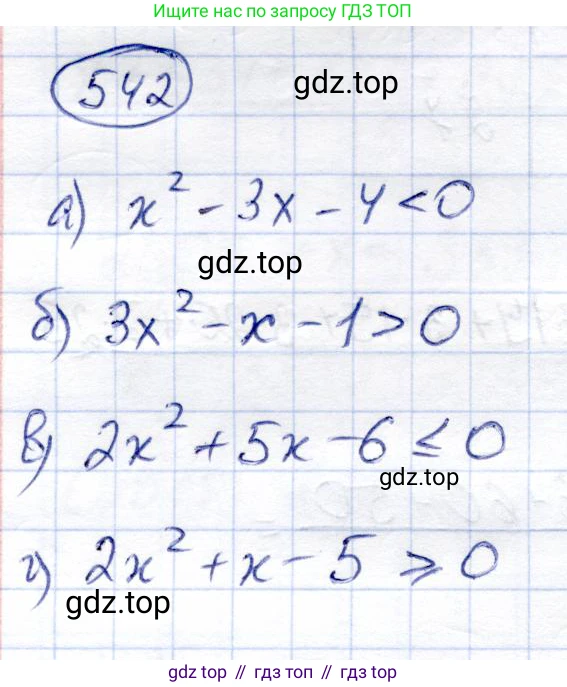 Ищите нас по запросу ГДЗ ТОП
542
gdz.top
а) x² - 3x - 4 < 0
gdz.top
б) 3x² - x - 1 > 0
в) 2x² + 5x - 6 ≤ 0
gdz.top
г) 2x² + x - 5 ⩾ 0
gdz.top
gdz top // гдз топ // gdz top